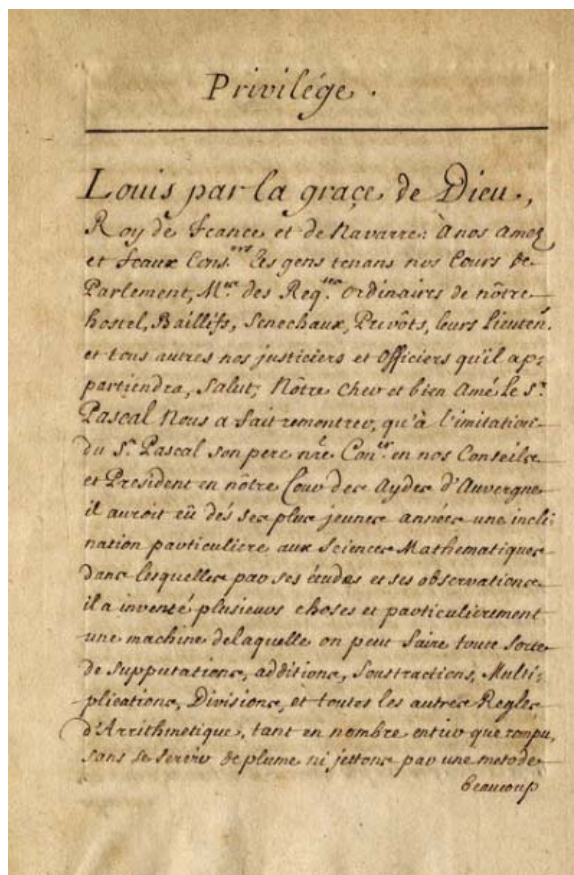 Privilége.
Louis par la graçe de Dieu,
Roy de France et de Navarre: À nos Amez
et feaux Cons.ers les gens tenans nos Cours de
Parlement, M.res des Req.tes ordinaires de nôtre
hostel, Baillifs, Senechaux, Prevôts, leurs Lieuten.s
et tous autres nos justiciers et Officiers qu'il ap=
partiendra, Salut; Nôtre cher et bien Amé Le S.r
Pascal Nous a fait remontrer, qu'à l'imitation
du S.r Pascal son pere nre Con.er en nos Conseils
et President en nôtre Cour des Aydes d'Auvergne
il auroit eû dés ses plus jeunes années une incli
nation particuliere aux Sciences Mathematiques
dans lesquelles par ses études et ses observations
il a inventé plusieurs choses et particulierement
une machine delaquelle on peut faire toute sorte
de supputations, additions, Soustractions, Multi=
plications, Divisions, et toutes les autres Regles
d'Arrithmetique, tant en nombre entier que rompu,
sans se servir de plume ni jettons par une metode
beaucoup